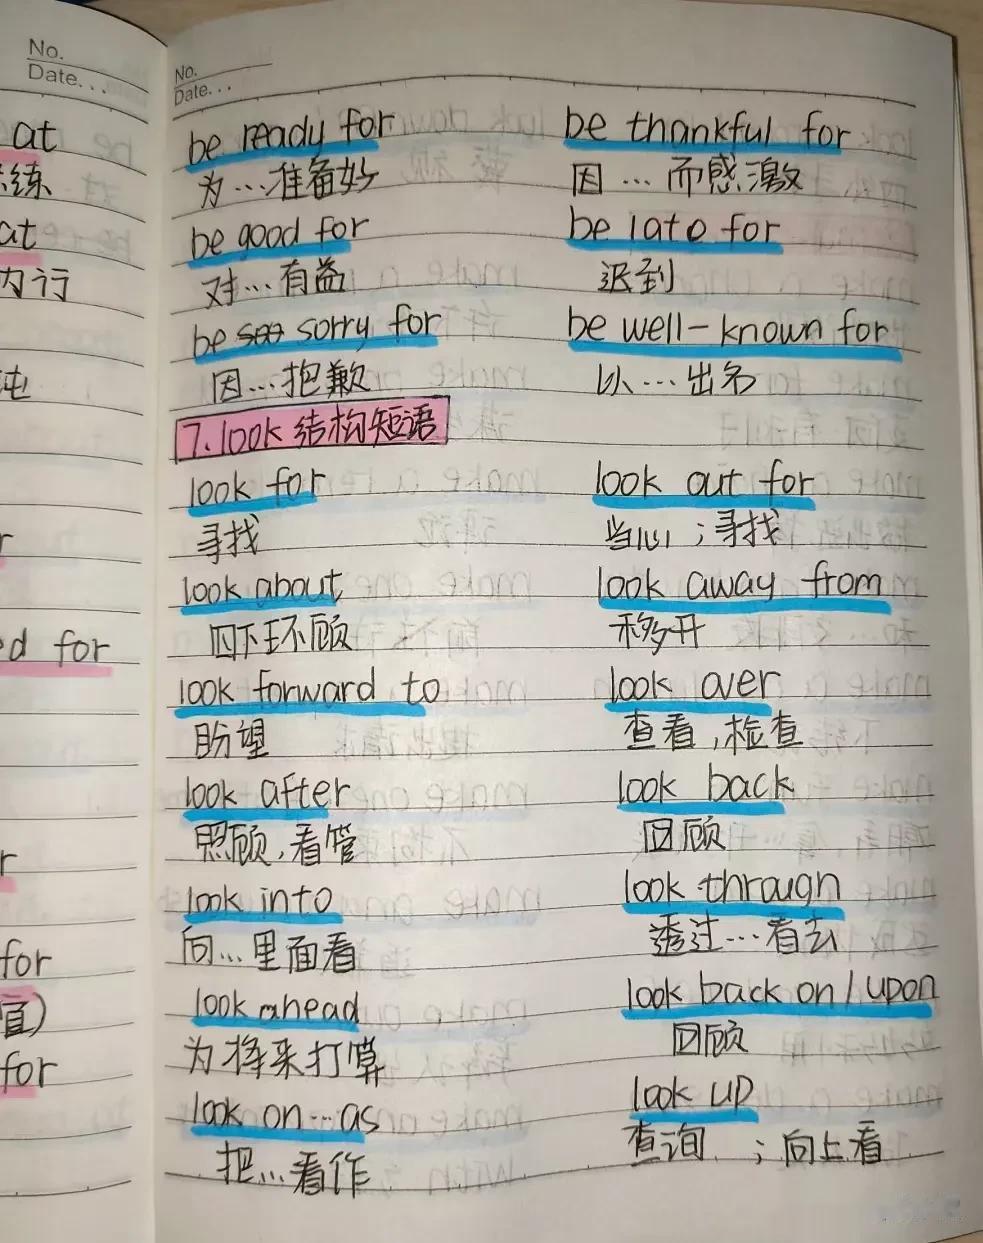 No.
Date...
at
练
at
内行
d for
for
for
No.
Date...
be ready for
be thankful for
为…准备好
因…而感激
be good for
be late for
对…有益
迟到
be sorry for
be well-known for
因…抱歉
以…出名
7.look结构短语
look for
look out for
寻找
当心;寻找
look about
look away from
四下环顾
移开
look forward to
look over
盼望
查看,检查
look after
look back
照顾,看管
回顾
look into
look through
向…里面看
透过…看去
look ahead
look back on/upon
为将来打算
回顾
look on…as
look up
把…看作
查询;向上看